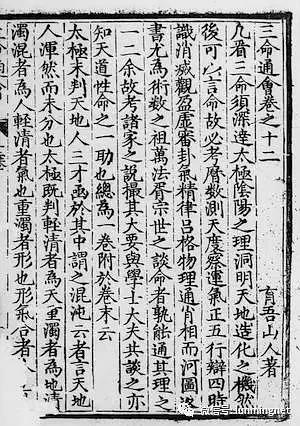 三命通會卷之十二
育吾山人著
凡看三命須深達太極陰陽之理洞明天地造化之機然
後可以言命故必考曆數測天度察運氣正五行辯四時
識消滅觀盈虛審卦氣精律呂格物理通肖相而河圖洛
書尤為術數之祖萬法胥宗世之談命者孰能通其理之
一二余故考諸家之說撮其大要與學士大夫共談之亦
知天道性命之一助也總為一卷附於卷末云
太極未判天地人三才函於其中謂之混沌云者言天地
人渾然而未分也太極既判輕清者為天重濁者為地清
濁混者為人輕清者氣也重濁者形也形氣合者
微信号: lunmingnet